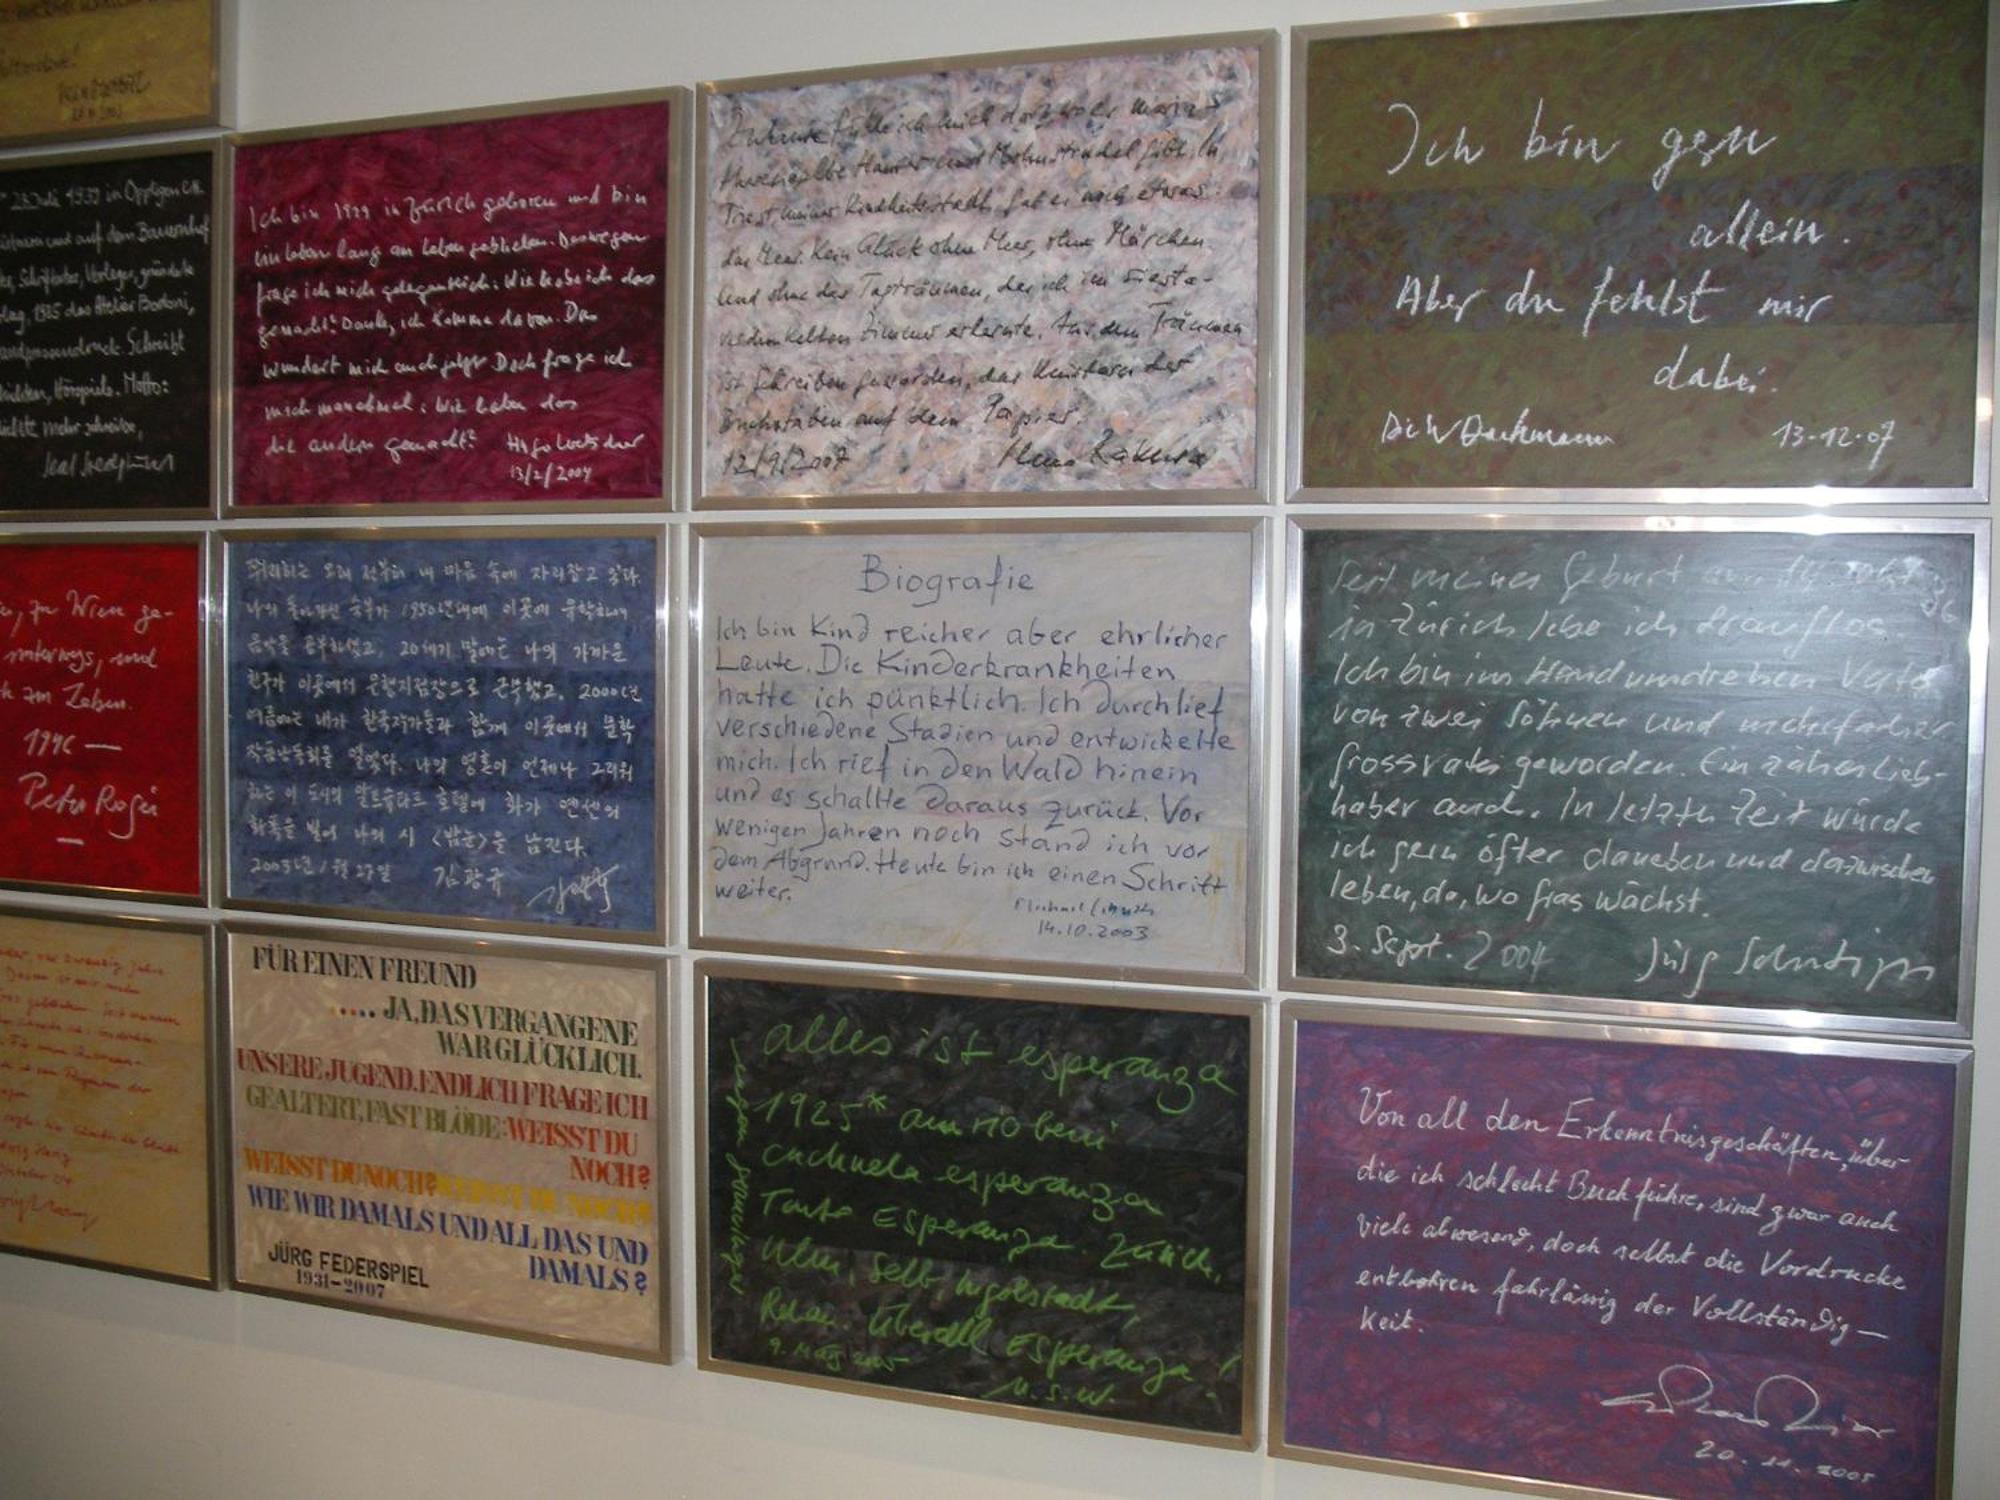 28 Juli 1939 in Oppligen
und auf dem Bauernhof
Schriftsetzer, Verleger, gründete
1985 das Atelier Bodoni,
Handpressendruck. Schreibt
Hörspiele. Motto:
mehr schreibe,
Ich bin 1929 in Zürich geboren und bin
ein leben lang am leben geblieben. Deswegen
frage ich mich gelegentlich: Wie habe ich das
gemacht? Danke, ich komme davon. Das
wundert mich auch jetzt. Doch frage ich
mich manchmal: wie haben das
die andern gemacht? Hugo Loetscher
13/2/2004
Zuhause fühle ich mich dort, wo es
Triest, meiner Kindheitsstadt, gab es noch etwas:
das Meer. Kein Glück ohne Meer, ohne Märchen
und ohne das Tagträumen, das ich im Siesta-
verdunkelten Zimmer erlernte. Aus dem Träumen
ist Schreiben geworden, das
Buchstaben auf dem Papier.
12/9/2007 Ilma Rakusa
Ich bin gern
allein.
Aber du fehlst mir
dabei.
13-12-07
zu Wien ge-
unterwegs, und
am Leben.
1946 —
Peter Rosei
—
취리히는 오래 전부터 내 마음 속에 자리잡고 있다.
나의 돌아가신 숙부가 1950년대에 이곳에 유학하여
음악을 공부하셨고, 20세기 말에는 나의 가까운
친구가 이곳에서 은행지점장으로 근무했고, 2000년
여름에는 내가 한국작가들과 함께 이곳에서 문학
작품낭독회를 열었다. 나의 영혼이 언제나 그리워
하는 이 도시의 알트슈타트 호텔에 화가 옌센의
화폭을 빌어 나의 시 〈밤눈〉을 남긴다.
2003년 1월 27일 김광규
Biografie
Ich bin Kind reicher aber ehrlicher
Leute. Die Kinderkrankheiten
hatte ich pünktlich. Ich durchlief
verschiedene Stadien und entwickelte
mich. Ich rief in den Wald hinein
und es schallte daraus zurück. Vor
wenigen Jahren noch stand ich vor
dem Abgrund. Heute bin ich einen Schritt
weiter.
14.10.2003
Seit meiner Geburt am
in Zürich lebe ich drauflos.
Ich bin im Handumdrehen Vater
von zwei Söhnen und mehrfacher
Grossvater geworden. Ein zäher Lieb-
haber auch. In letzter Zeit würde
ich gern öfter daneben und dazwischen
leben, da, wo Gras wächst.
3. Sept. 2004 Jürg Schubiger
FÜR EINEN FREUND
..... JA, DAS VERGANGENE
WAR GLÜCKLICH.
UNSERE JUGEND. ENDLICH FRAGE ICH
GEALTERT, FAST BLÖDE: WEISST DU
NOCH?
WEISST DU NOCH? WEISST DU NOCH?
WIE WIR DAMALS UND ALL DAS UND
DAMALS?
JÜRG FEDERSPIEL
1931–2007
alles ist esperanza
1925* am rio beni
cachuela esperanza
Tante Esperanza. Zürich,
Ulm, Selb, Ingolstadt,
Rehau. Überall Esperanza!
9. März 2005 u.s.w.
eugen gomringer
Von all den Erkenntnisgeschäften, über
die ich schlecht Buch führe, sind zwar auch
viele abwesend, doch selbst die Vordrucke
entbehren fahrlässig der Vollständig—
keit.
20. 11. 2005